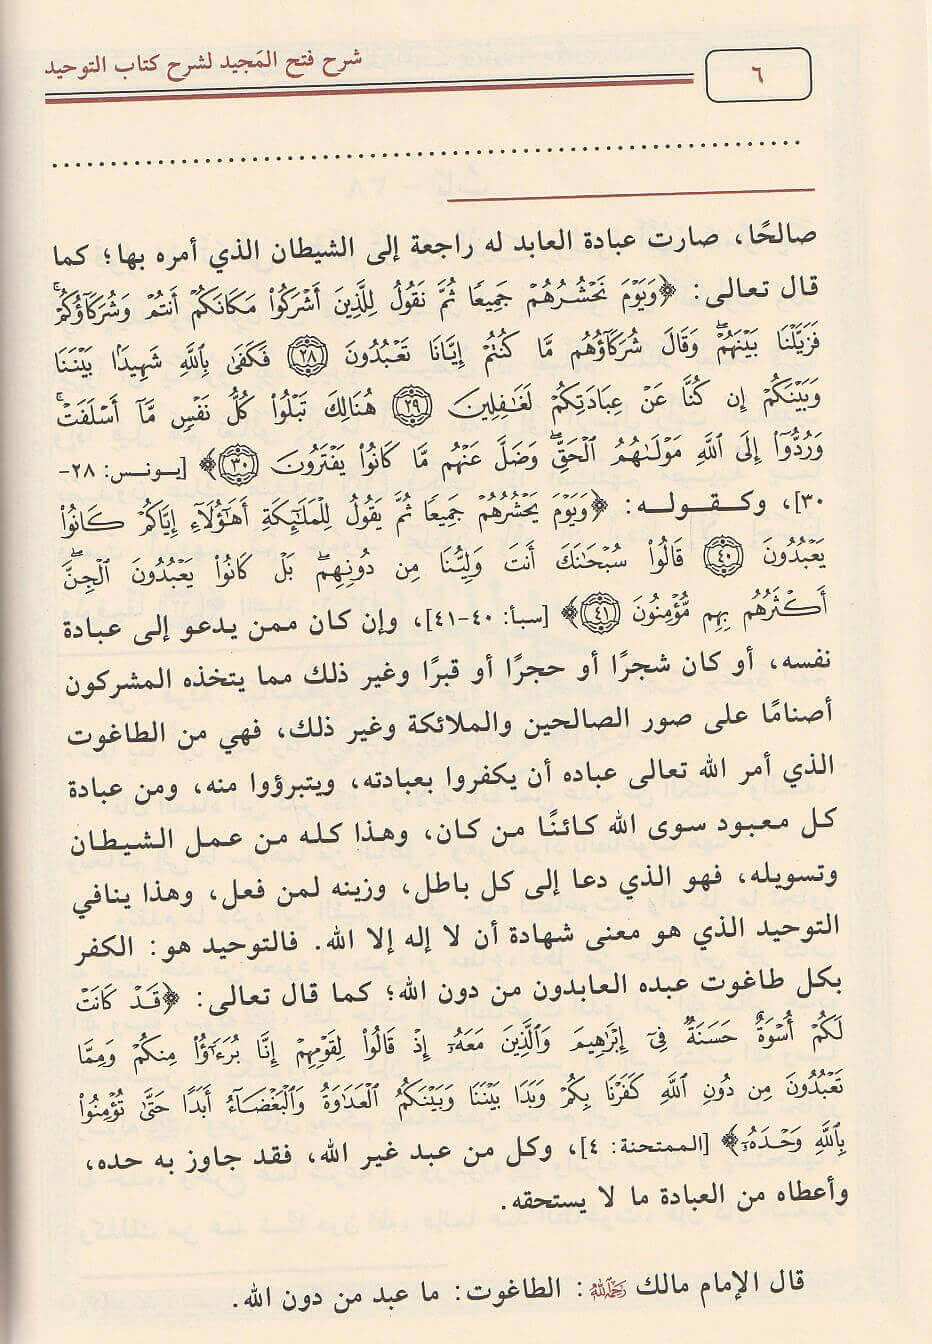 ٦
شرح فتح المَجيد لشرح كتاب التوحيد
صالحًا، صارت عبادة العابد له راجعة إلى الشيطان الذي أمره بها؛ كما
قال تعالى: ﴿وَيَوْمَ نَحْشُرُهُمْ جَمِيعًا ثُمَّ نَقُولُ لِلَّذِينَ أَشْرَكُوا۟ مَكَانَكُمْ أَنتُمْ وَشُرَكَآؤُكُمْ ۚ
فَزَيَّلْنَا بَيْنَهُمْ ۖ وَقَالَ شُرَكَآؤُهُم مَّا كُنتُمْ إِيَّانَا تَعْبُدُونَ ۝٢٨ فَكَفَىٰ بِٱللَّهِ شَهِيدًۢا بَيْنَنَا
وَبَيْنَكُمْ إِن كُنَّا عَنْ عِبَادَتِكُمْ لَغَـٰفِلِينَ ۝٢٩ هُنَالِكَ تَبْلُوا۟ كُلُّ نَفْسٍ مَّآ أَسْلَفَتْ ۚ
وَرُدُّوٓا۟ إِلَى ٱللَّهِ مَوْلَىٰهُمُ ٱلْحَقِّ ۖ وَضَلَّ عَنْهُم مَّا كَانُوا۟ يَفْتَرُونَ ۝٣٠﴾ [يونس: ٢٨-
٣٠]، وكقوله: ﴿وَيَوْمَ يَحْشُرُهُمْ جَمِيعًا ثُمَّ يَقُولُ لِلْمَلَـٰٓئِكَةِ أَهَـٰٓؤُلَآءِ إِيَّاكُمْ كَانُوا۟
يَعْبُدُونَ ۝٤٠ قَالُوا۟ سُبْحَـٰنَكَ أَنتَ وَلِيُّنَا مِن دُونِهِم ۖ بَلْ كَانُوا۟ يَعْبُدُونَ ٱلْجِنَّ ۖ
أَكْثَرُهُم بِهِم مُّؤْمِنُونَ ۝٤١﴾ [سبأ: ٤٠-٤١]، وإن كان ممن يدعو إلى عبادة
نفسه، أو كان شجرًا أو حجرًا أو قبرًا وغير ذلك مما يتخذه المشركون
أصنامًا على صور الصالحين والملائكة وغير ذلك، فهي من الطاغوت
الذي أمر الله تعالى عباده أن يكفروا بعبادته، ويتبرؤوا منه، ومن عبادة
كل معبود سوى الله كائنًا من كان، وهذا كله من عمل الشيطان
وتسويله، فهو الذي دعا إلى كل باطل، وزينه لمن فعل، وهذا ينافي
التوحيد الذي هو معنى شهادة أن لا إله إلا الله. فالتوحيد هو: الكفر
بكل طاغوت عبده العابدون من دون الله؛ كما قال تعالى: ﴿قَدْ كَانَتْ
لَكُمْ أُسْوَةٌ حَسَنَةٌ فِىٓ إِبْرَٰهِيمَ وَٱلَّذِينَ مَعَهُۥٓ إِذْ قَالُوا۟ لِقَوْمِهِمْ إِنَّا بُرَءَٰٓؤُا۟ مِنكُمْ وَمِمَّا
تَعْبُدُونَ مِن دُونِ ٱللَّهِ كَفَرْنَا بِكُمْ وَبَدَا بَيْنَنَا وَبَيْنَكُمُ ٱلْعَدَٰوَةُ وَٱلْبَغْضَآءُ أَبَدًا حَتَّىٰ تُؤْمِنُوا۟
بِٱللَّهِ وَحْدَهُۥٓ﴾ [الممتحنة: ٤]، وكل من عبد غير الله، فقد جاوز به حده،
وأعطاه من العبادة ما لا يستحقه.
قال الإمام مالك رَحِمَهُ اللهُ: الطاغوت: ما عبد من دون الله.